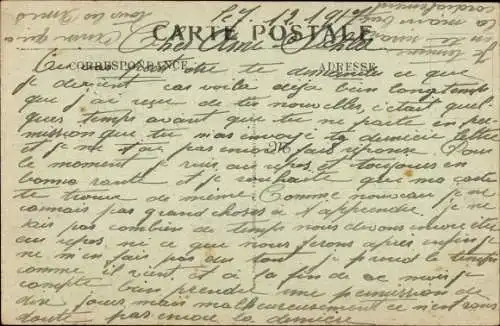 CARTE POSTALE
CORRESPONDANCE
ADRESSE
Cher Ami
peut être te demandes ce que
je devient car voilà déja bien longtemps
que j'ai reçue de tes nouvelles, c'était quel-
ques temps avant que tu ne parte en per-
mission que tu m'as envoyé ta dernière lettre
et je ne t'ai pas encore fais réponse. Pour
le moment je suis au repos et toujours en
bonne santé et je souhaite que ma carte
te trouve de même. Comme nouveau je ne
connais pas grand choses à t'apprendre. je ne
sais pas combien de temps nous devons encore être
au repos, ni ce que nous ferons après enfin je
ne m'en fais pas du tout je prend le temps
comme il vient et à la fin de ce mois je
compte bien prendre une permission de
dix jours mais malheureusement ce n'est sans
doute pas encore la dernière